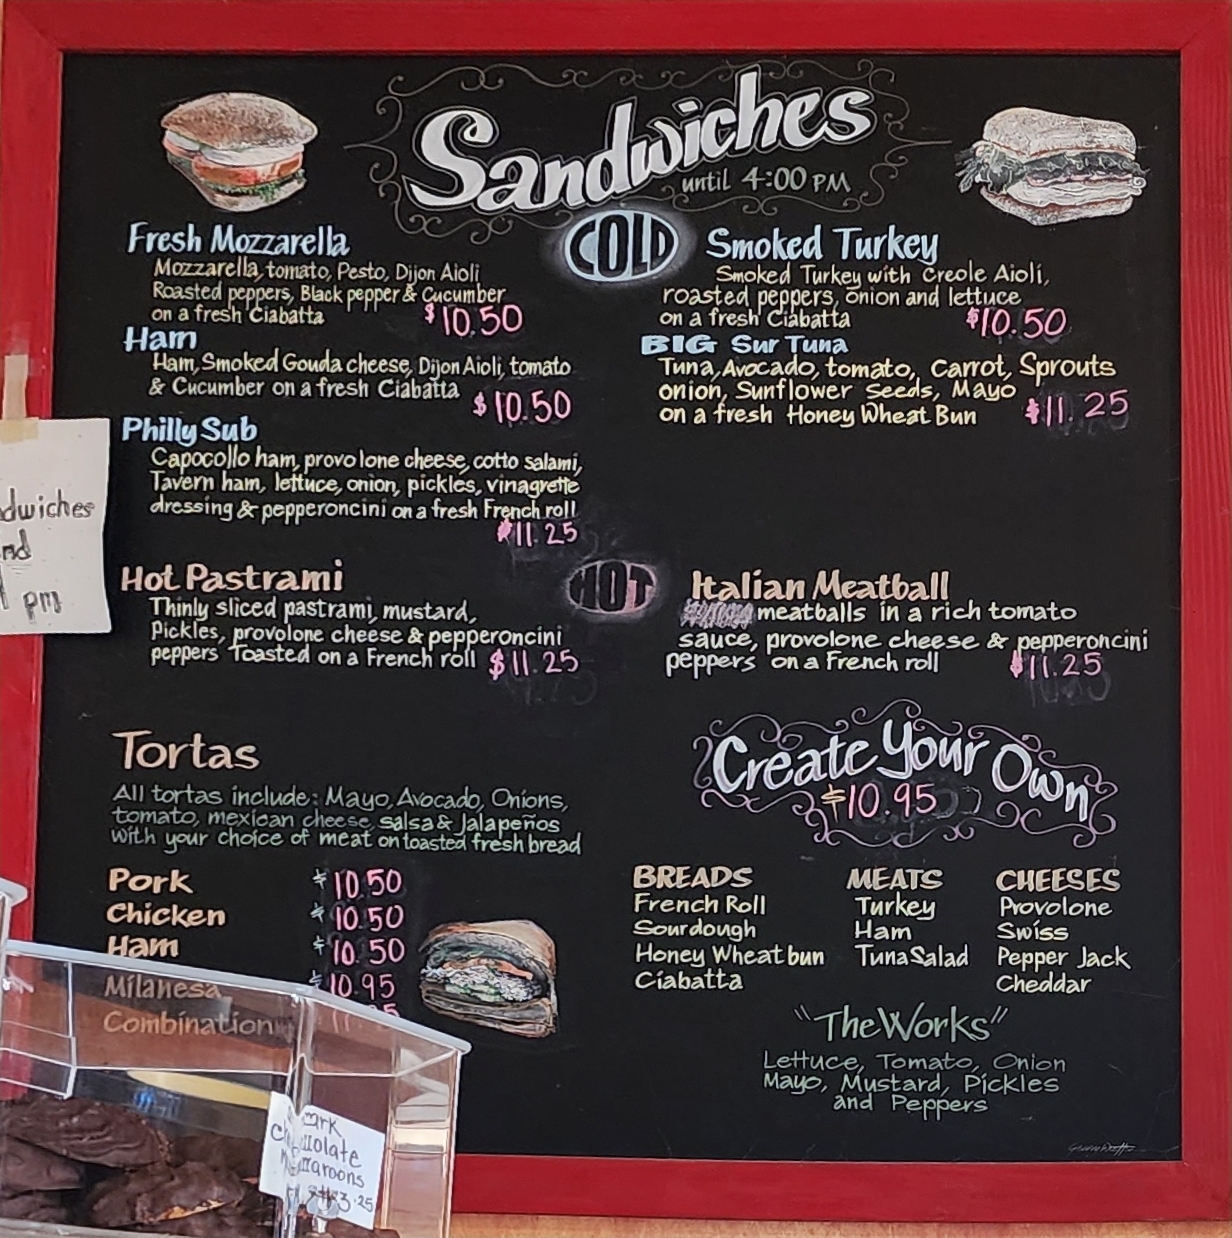 Sandwiches
until 4:00 PM
COLD
Fresh Mozzarella
Mozzarella, tomato, Pesto, Dijon Aioli
Roasted peppers, Black pepper & Cucumber
on a fresh Ciabatta $10.50
Ham
Ham, Smoked Gouda cheese, Dijon Aioli, tomato
& Cucumber on a fresh Ciabatta $10.50
Philly Sub
Capocollo ham, provolone cheese, cotto salami,
Tavern ham, lettuce, onion, pickles, vinagrette
dressing & pepperoncini on a fresh French roll
$11.25
Smoked Turkey
Smoked Turkey with Creole Aioli,
roasted peppers, onion and lettuce
on a fresh Ciabatta $10.50
BIG Sur Tuna
Tuna, Avocado, tomato, Carrot, Sprouts
onion, Sunflower Seeds, Mayo
on a fresh Honey Wheat Bun $11.25
HOT
Hot Pastrami
Thinly sliced pastrami, mustard,
Pickles, provolone cheese & pepperoncini
peppers Toasted on a French roll $11.25
Italian Meatball
meatballs in a rich tomato
sauce, provolone cheese & pepperoncini
peppers on a French roll $11.25
Tortas
All tortas include: Mayo, Avocado, Onions,
tomato, mexican cheese salsa & Jalapeños
with your choice of meat on toasted fresh bread
Pork $10.50
Chicken $10.50
Ham $10.50
Milanesa $10.95
Combination
Create Your Own
$10.95
BREADS
French Roll
Sourdough
Honey Wheat bun
Ciabatta
MEATS
Turkey
Ham
Tuna Salad
CHEESES
Provolone
Swiss
Pepper Jack
Cheddar
"The Works"
Lettuce, Tomato, Onion
Mayo, Mustard, Pickles
and Peppers
dwiches
nd
pm